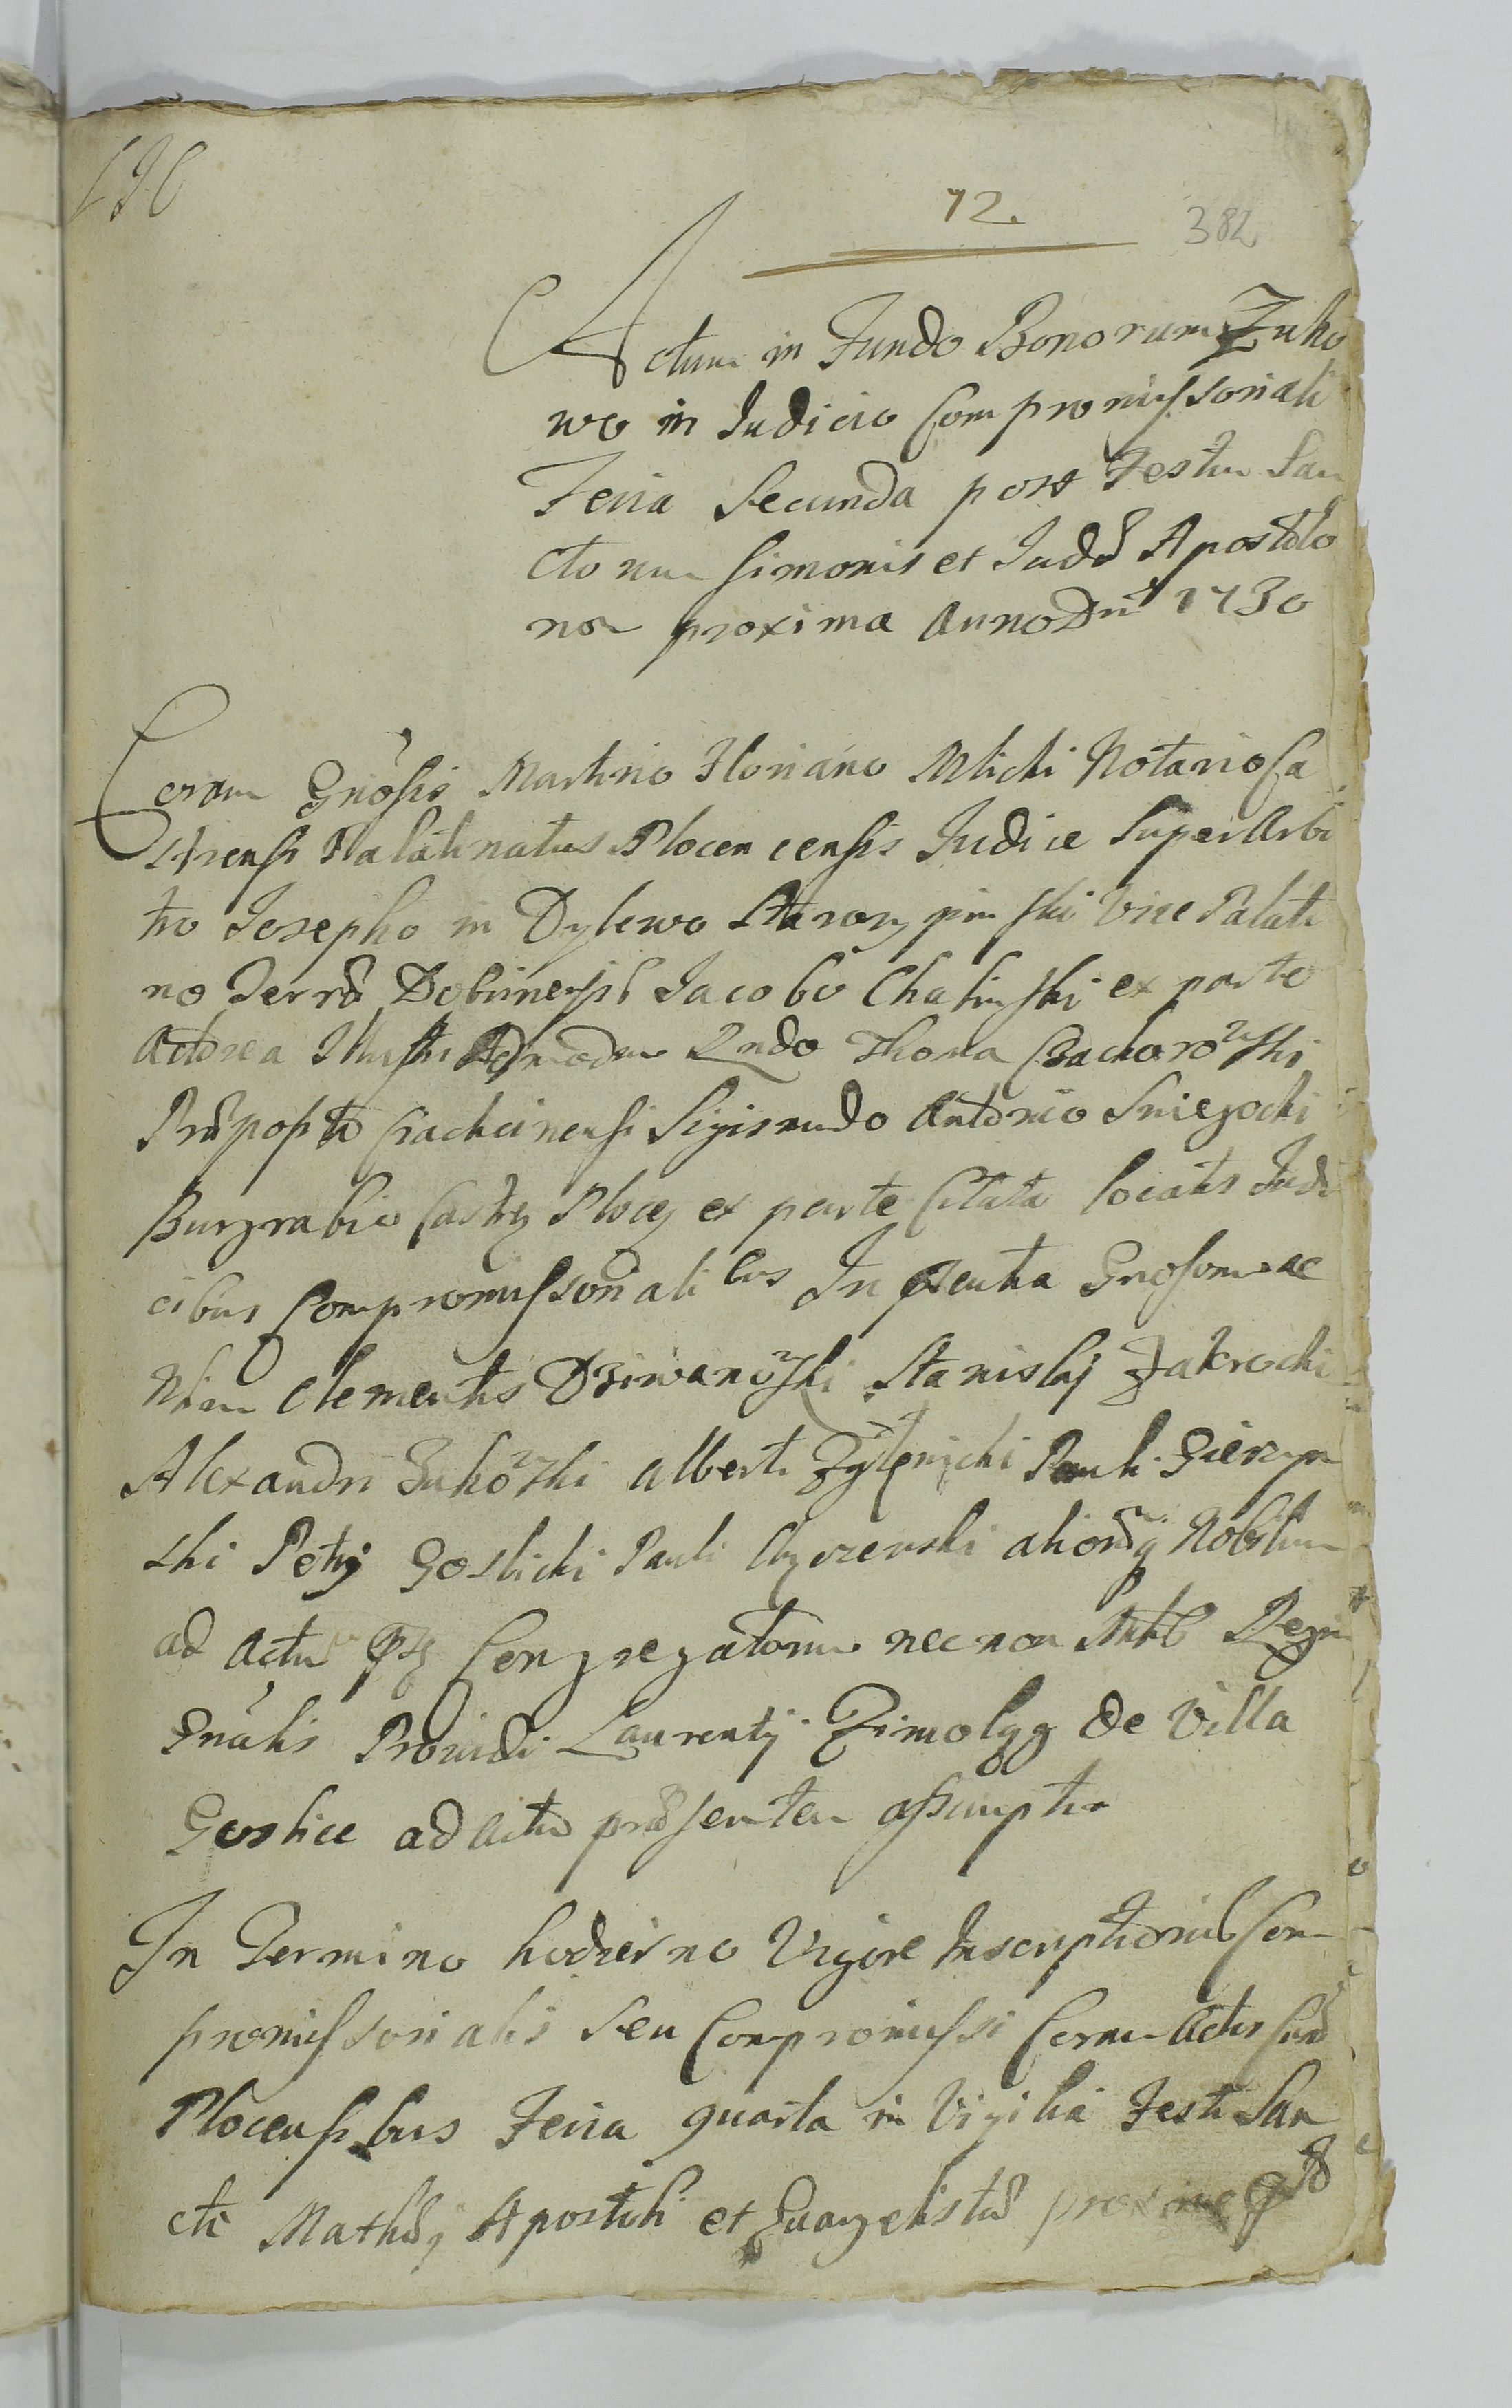 72.
382
Actum in Fundo Bonorum Zuko
wo in Judicio Compromissoriali
Feria Secunda post Festum San
ctorum Simonis et Judæ Apostolo
rum proxima Anno Dni 1730
Coram Gnosis Martino Floriano Mlicki Notario Ca
strensi Palatinatus Plocen censis Judice SuperArbi
tro Josepho in Dylewo Starorypinski Vice Palati
no Terræ Dobrinensis Jacobo Chalinski ex parte
Actorea Illustri Admodum Rndo Thoma Czachorowski
Præposito Ciachcinensi Sigismundo Antonio Sniegocki
Burgrabio Castri Plocen ex parte Citata locatis Judi
cibus Compromissorialibus In præsentia Gnosorum ac
Nbium Clementis Dziwanowski Stanislai Zakrocki
Alexandri Zukowski Alberti Pauli Gierzyn
ski Petri Goslicki Pauli aliorumq Nobilium
ad Actum Congregatorum necnon Mnlis Regni
Gnalis Providi Laurentij Zimolag de Villa
Goslice ad Actum præsentem assumpti
In Termino hodierno Vigore Inscriptionis Com
promissorialis seu Compromissi Coram Actis
Plocensibus Feria quarta in Vigilia Festi San
cti Mathæi Apostoli et Evangelistæ proxime